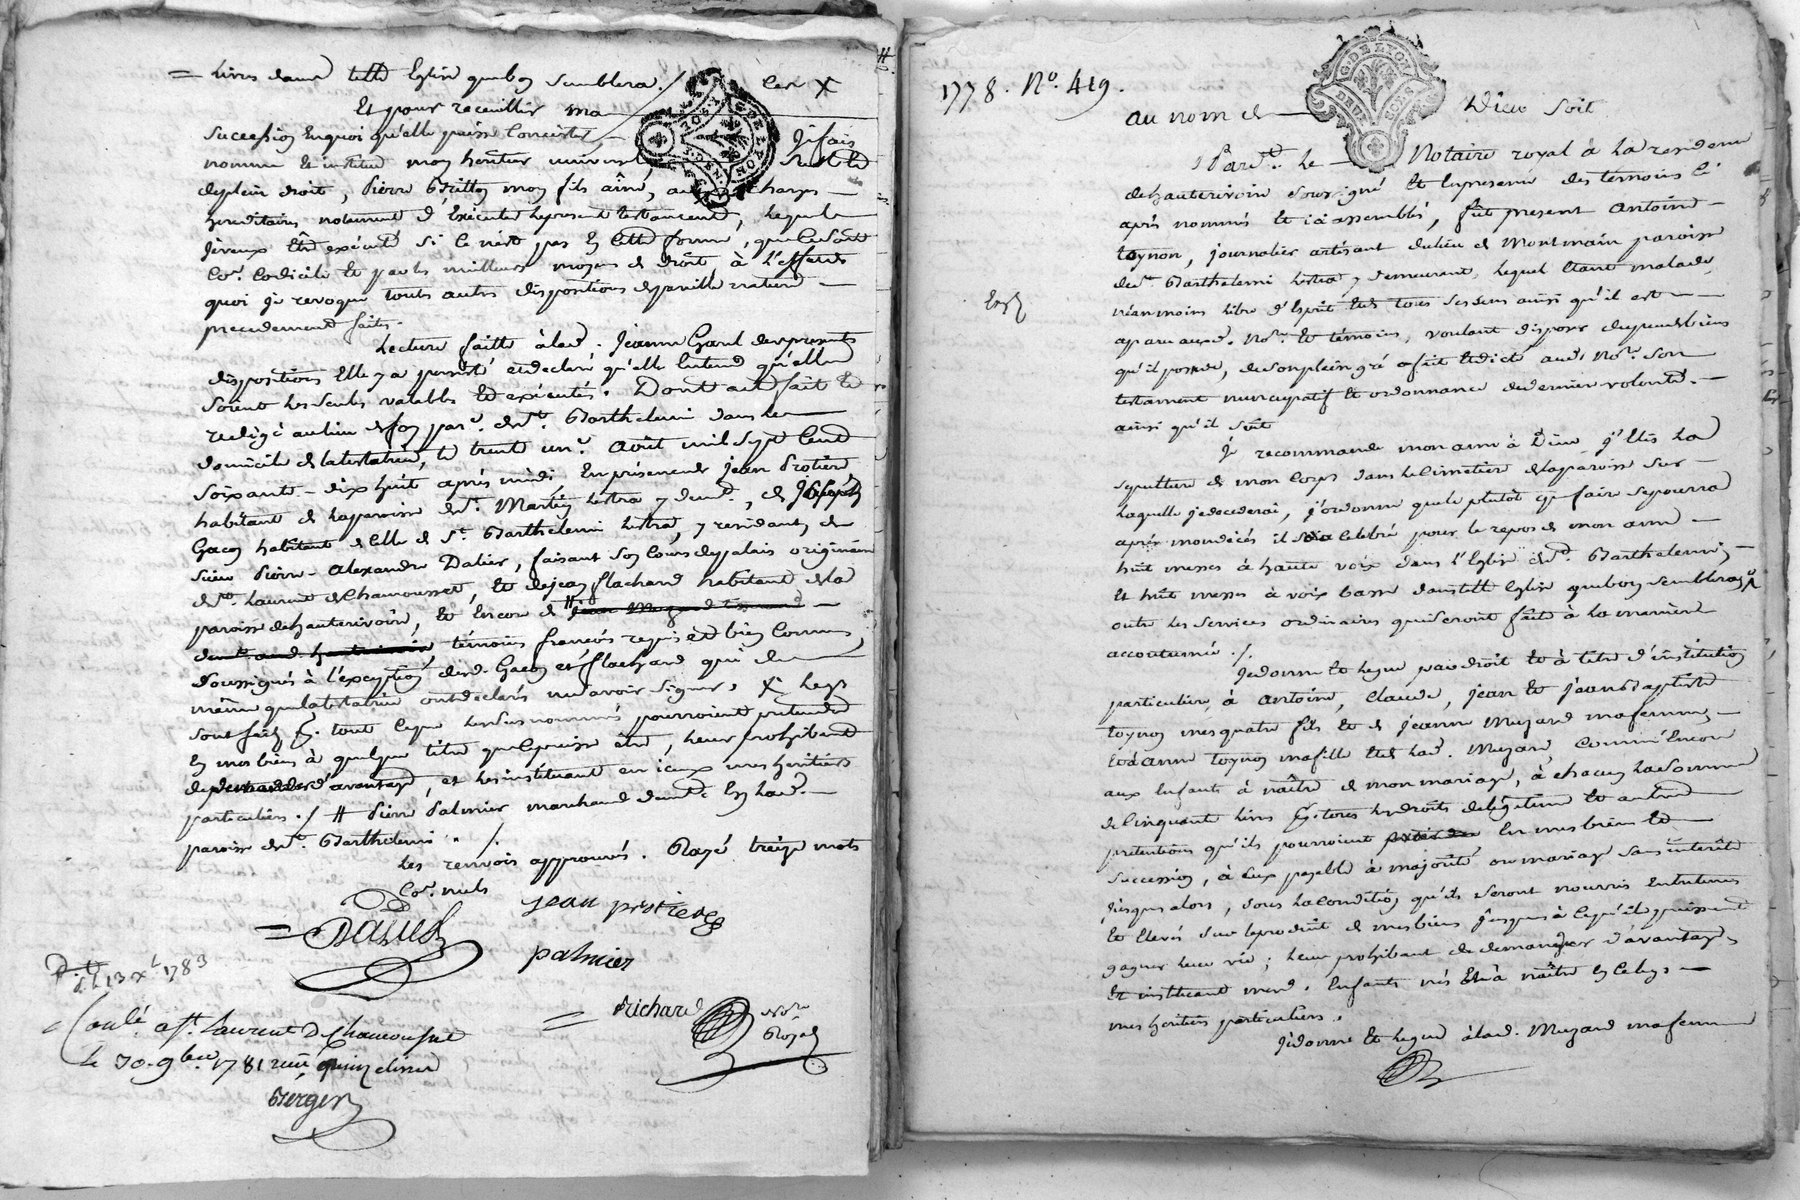 livres dans telle Eglise que bon semblera ./. les X
Et pour receuillir ma
succession en quoi qu'elle puisse Consister Je fais
nomme & institue mon heritier universel seul &
de plein droit, Pierre Grillon mon fils aîné, aux charges
hereditaires notament d'Exécuter le present testament, lequel
Je veux être exécuté si ce n'est pas En cette forme, que ce soit
Co.e Codicile et par les meilleurs moyens de droit, à l'effet de
quoi je revoque toute autre disposition de pareille nature
precedement faite.
Lecture faitte à lad. Jeanne Garel des presents
dispositions Elle y a persisté et declaré qu'elle Entend qu'elle
soient les seules valables et exécutés. Dont acte fait et
redigé au lieu de par.e de St. Barthelemi dans le
domicile de la testatrice, le trente un.e Août mil sept Cent
soixante-dix huit après midi, En présence de Jean Protiere
habitant de la paroisse de St. Martin Lestra y dem.t, de Joseph
Gacon habitant de Celle de St. Barthelemi Lestra, y residant, de
sieur Pierre-Alexandre Dalier, faisant son Cours de palais originaire
de St. Laurent de Chamousset, Et de jean flachard habitant de la
paroisse de hauterivoire, Et Encore de #
témoins françois requis et bien Connus,
soussignés à l'exception desd. Gacon et flachard qui de
même que la testatrice ont declarés ne savoir signer, X legs
sont faits p.r tout ce que les susnommés pourroient pretendre
En mes biens à quelque titre que ce puisse être, leur prohibant
de demander d'avantage, et les instituant en iceux mes heritiers
particuliers ./. # Pierre Palmier marchand dem.t En lad.
paroisse de St. Barthelemi ./.
Les renvois approuvés. Rayé treize mots
Co.e nuls
jean protiere
palmier
Richard No.re
Royal
le 13 x.e 1783
Contlé à St. Laurent De Chamousset
Le 30. 9bre. 1781 reçu quinze livres
Berger
1778. N.o 419.
Au nom de Dieu soit
Pard.t le Notaire royal à la residence
de hauterivoire soussigné et En presence des temoins ci
après nommés et ici assemblés, fût present Antoine
toynon, journalier artisant du lieu de Montmain paroisse
de St. Barthelemi Lestra y demeurant, lequel Etant malade,
néanmoins libre d'Esprit Et de tous ses sens ainsi qu'il est
aparu aud. No.re et témoins, voulant disposer du peu de biens
qu'il possede, de son plein gré a fait Et dicté aud. No.re son
testament nuncupatif et ordonnance de derniere volonté.
ainsi qu'il suit
Je recommande mon ame à Dieu j'Elis la
sepulture de mon Corps dans le Cimetiere de la paroisse sur
laquelle je decederai, j'ordonne que le plutôt que faire se pourra
après mon decés il soit Celebré pour le repos de mon ame
huit messes à haute voix dans l'Eglise de St. Barthelemi,
Et huit messes à voix basse dans telle Eglise que bon semblera,
outre les services ordinaires qui seront faits à la maniere
accoutumée ./.
Je donne et legue par droit et à titre d'institution
particuliere, à Antoine, Claude, jean et jean Baptiste
toynon mes quatre fils et de jeanne Muzard ma femme,
Et à anne toynon ma fille Et de lad. Muzard, Comme Encore
aux Enfants à naître de mon mariage, à chacun la somme
de Cinquante livres p.r tous les droits de legitime et autres
pretentions qu'ils pourroient En mes biens et
succession, à Eux payable à majorité ou mariage sans interêts
jusques alors, sous la Condition qu'ils seront nourris Entretenus
Et Elevés sur le produit de mes biens jusques à ce qu'ils puissent
gagner leur vie; leur prohibant de demander d'avantage,
Et instituant mesd. Enfants nés Et à naître En ce legs
mes heritiers particuliers.
Je donne Et legue à lad. Muzard ma femme